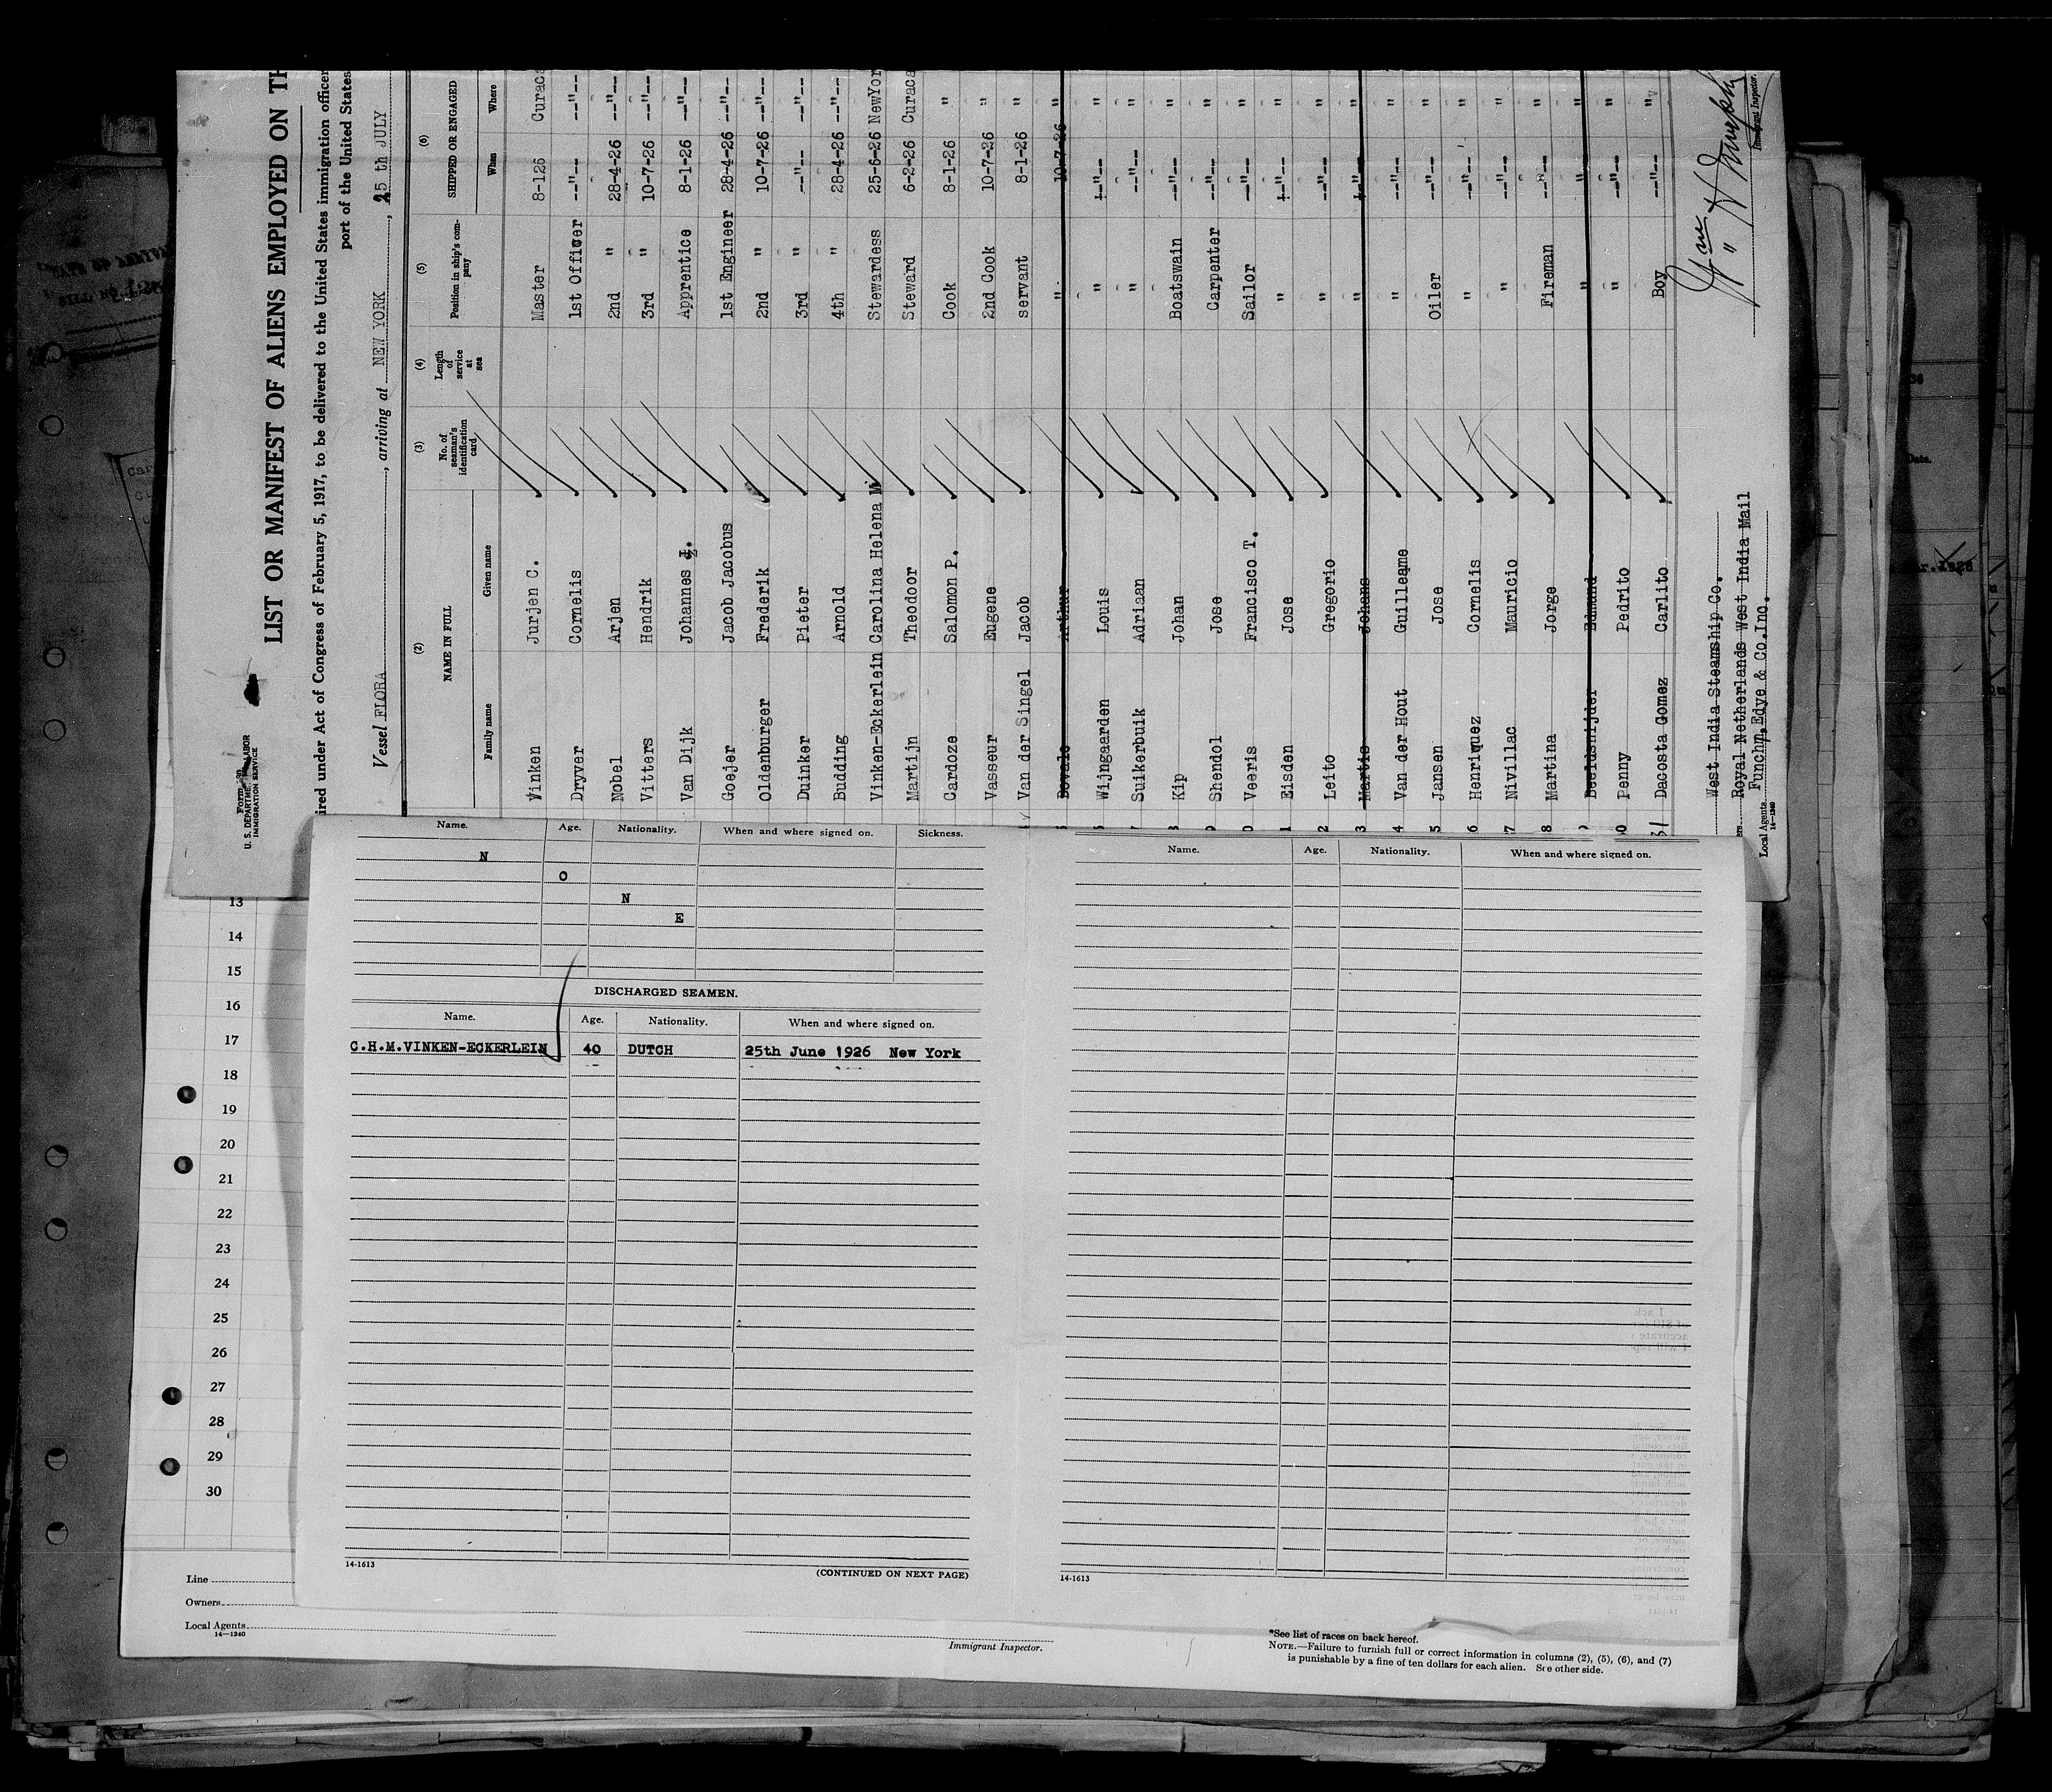 Form
U. S. DEPARTMENT OF LABOR
IMMIGRATION SERVICE
LIST OR MANIFEST OF ALIENS EMPLOYED ON TH
ired under Act of Congress of February 5, 1917, to be delivered to the United States immigration officer
port of the United States
Vessel FLORA, arriving at NEW YORK, 25 th JULY
(2) (3) (4) (5) (6)
NAME IN FULL No. of seaman's identification card Length of service at sea Position in ship's company SHIPPED OR ENGAGED
Family name Given name When Where
Vinken Jurjen C. Master 8-126 Curac
Dryver Cornelis 1st Officer --"-- --"--
Nobel Arjen 2nd " 28-4-26 --"--
Vitters Hendrik 3rd " 10-7-26 --"--
Van Dijk Johannes J. Apprentice 8-1-26 --"--
Goejer Jacob Jacobus 1st Engineer 28-4-26 --"--
Oldenburger Frederik 2nd " 10-7-26 --"--
Duinker Pieter 3rd " --"-- --"--
Budding Arnold 4th " 28-4-26 --"--
Vinken-Eckerlein Carolina Helena M. Stewardess 25-6-26 NewYor
Martijn Theodoor Steward 6-2-26 Curac
Cardoze Salomon P. Cook 8-1-26 "
Vasseur Eugene 2nd Cook 10-7-26 "
Van der Singel Jacob servant 8-1-26 "
Dovale Arthur " 10-7-26 "
Wijngaarden Louis " --"-- "
Suikerbuik Adriaan " --"-- "
8 Kip Johan Boatswain --"-- "
9 Shendol Jose Carpenter --"-- "
0 Veeris Francisco T. Sailor --"-- "
1 Eisden Jose " --"-- "
2 Leito Gregorio " --"-- "
3 Martis Johans " --"-- "
4 Van der Hout Guilleaume " --"-- "
5 Jansen Jose Oiler --"-- "
6 Henriquez Cornelis " --"-- "
7 Nivillac Mauricio " --"-- "
8 Martina Jorge Fireman --"-- "
Beeldsnijder Edmand " " "
0 Penny Pedrito " --"-- "
31 Dacosta Gomez Carlito Boy --"-- "
West India Steamship Co.
Royal Netherlands West India Mail
Local Agents Funchn, Edye & Co.Inc.
14-1240
Immigrant Inspector.
Name. Age. Nationality. When and where signed on. Sickness.
N
O
N
E
DISCHARGED SEAMEN.
Name. Age. Nationality. When and where signed on.
C.H.M.VINKEN-ECKERLEIN 40 DUTCH 25th June 1926 New York
14-1613
(CONTINUED ON NEXT PAGE)
Name. Age. Nationality. When and where signed on.
14-1613
13
14
15
16
17
18
19
20
21
22
23
24
25
26
27
28
29
30
Line
Owners
Local Agents
14-1240
Immigrant Inspector.
*See list of races on back hereof.
NOTE.—Failure to furnish full or correct information in columns (2), (5), (6), and (7)
is punishable by a fine of ten dollars for each alien. See other side.
Date.